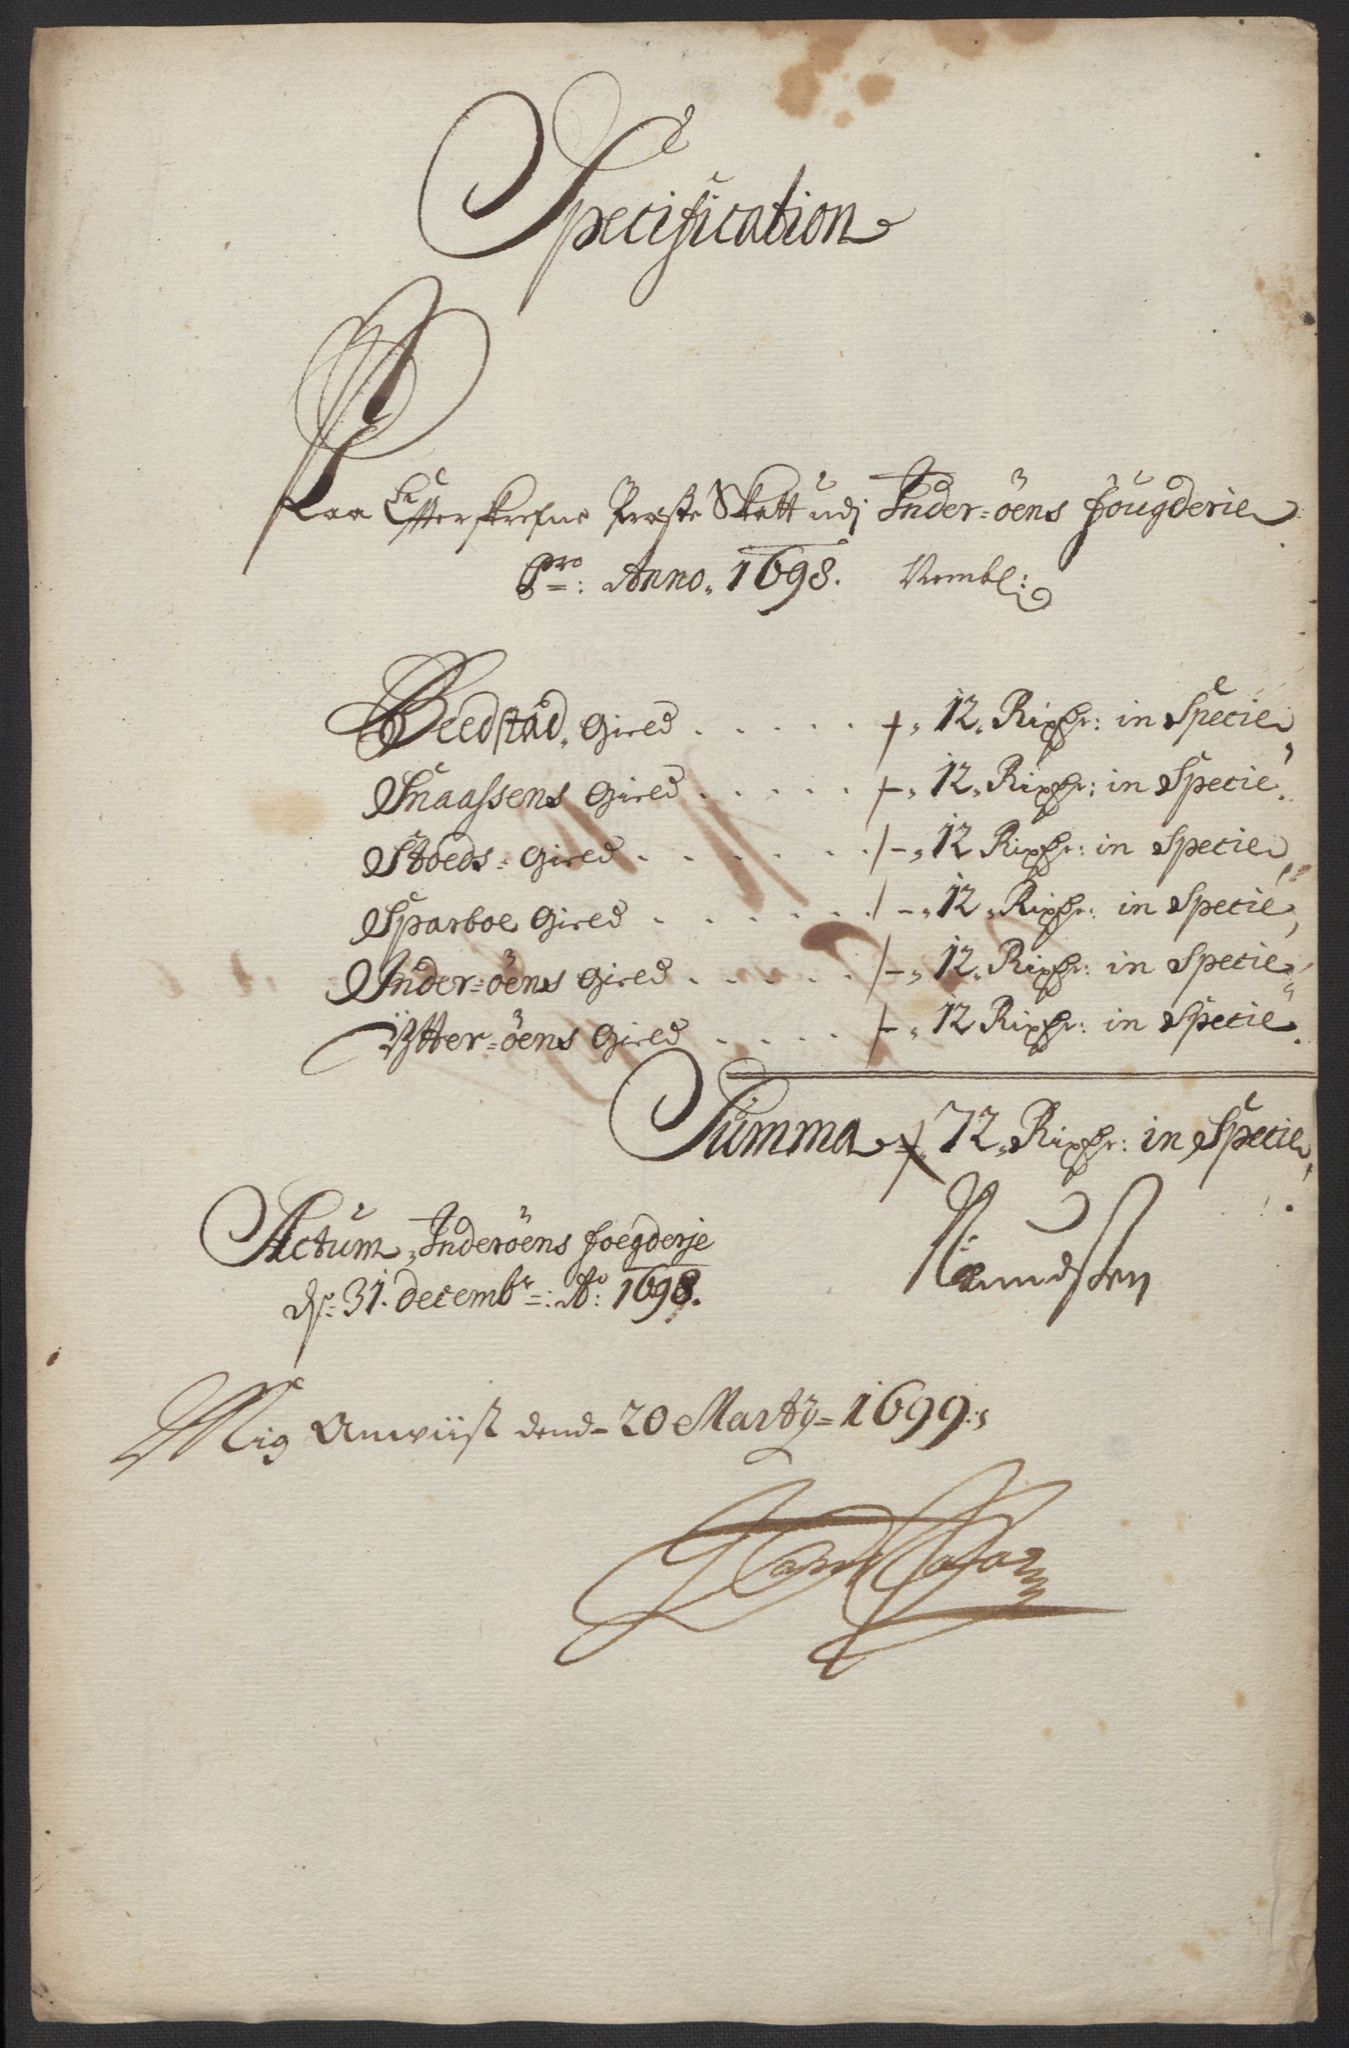 Specification
Paa Effterskrefne Præste Skatt udj Inder=öens fougderie
Pro: Anno 1698. Nembl:
Beedstad Gield ..... 12 Rixdhr: in Specie
Snaassens Gield ..... 12 Rixdhr: in Specie
Stoeds= Gield ...... 12 Rixdhr: in Specie
Sparboe Gield ...... 12 Rixdhr: in Specie
Inder=öens Gield ..... 12 Rixdhr: in Specie
Ytter=öens Gield .... 12 Rixdhr: in Specie
Summa 72 Rixdhr: in Specie
Actum Inderöens foegderje
ds: 31. decembr: Ao: 1698.
Mig Anwiist dend 20 Martij 1699